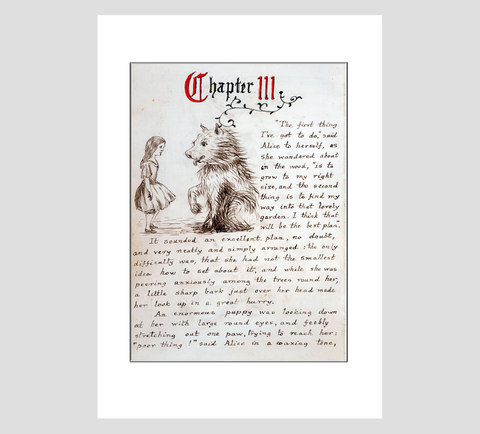 Chapter III
"The first thing
I've got to do," said
Alice to herself, as
she wandered about
in the wood, "is to
grow to my right
size, and the second
thing is to find my
way into that lovely
garden. I think that
will be the best plan."
It sounded an excellent plan, no doubt,
and very neatly and simply arranged: the only
difficulty was, that she had not the smallest
idea how to set about it, and while she was
peering anxiously among the trees round her,
a little sharp bark just over her head made
her look up in a great hurry.
An enormous puppy was looking down
at her with large round eyes, and feebly
stretching out one paw, trying to reach her:
"poor thing!" said Alice in a coaxing tone,